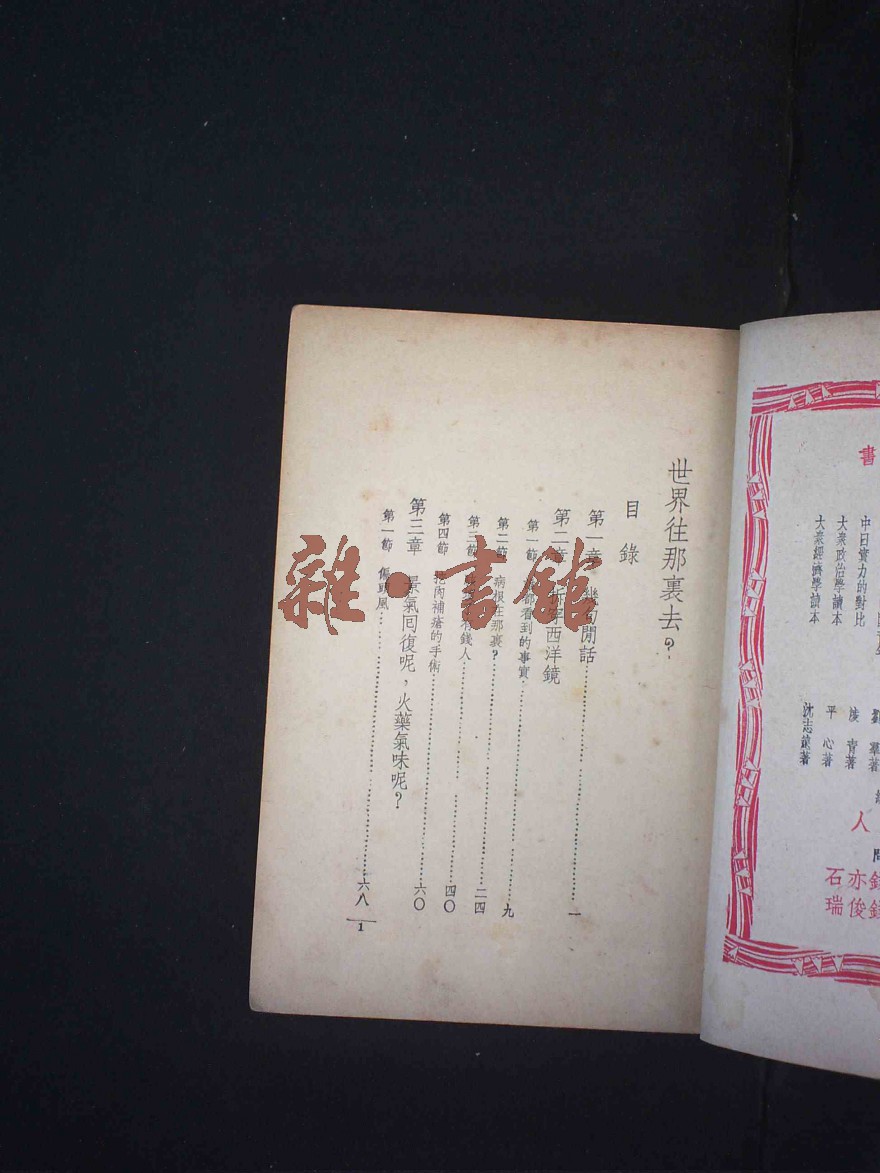 書
中日實力的對比
大衆政治學讀本
大衆經濟學讀本
著
漢青著
平心著
沈志遠著
人
問
石亦錢
瑞俊錢
世界往那裏去?
目錄
第一章 幾句閒話 一
第二章 拆穿西洋鏡
第一節 都看到的事實 九
第二節 病根在那裏? 二四
第三節 有錢人 四〇
第四節 挖肉補瘡的手術
第三章 景氣回復呢,火藥氣味呢? 六〇
第一節 傷頭風 六八
1
雜·書館